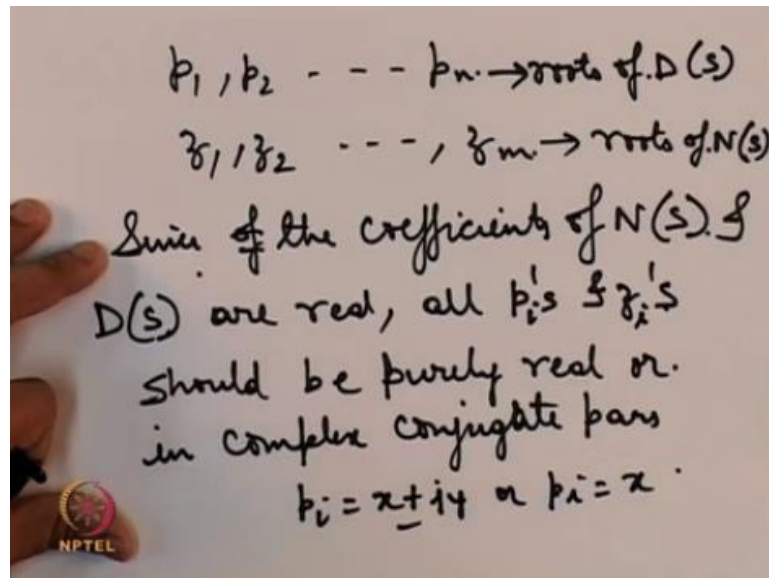 p₁, p₂ - - - pₙ. → roots of D(s)
z₁, z₂ - - -, zₘ. → roots of N(s)
Since of the coefficients of N(s) &
D(s) are real, all pᵢ's & zᵢ's
should be purely real or.
in complex conjugate pars
pᵢ = x ± iy or pᵢ = x
NPTEL